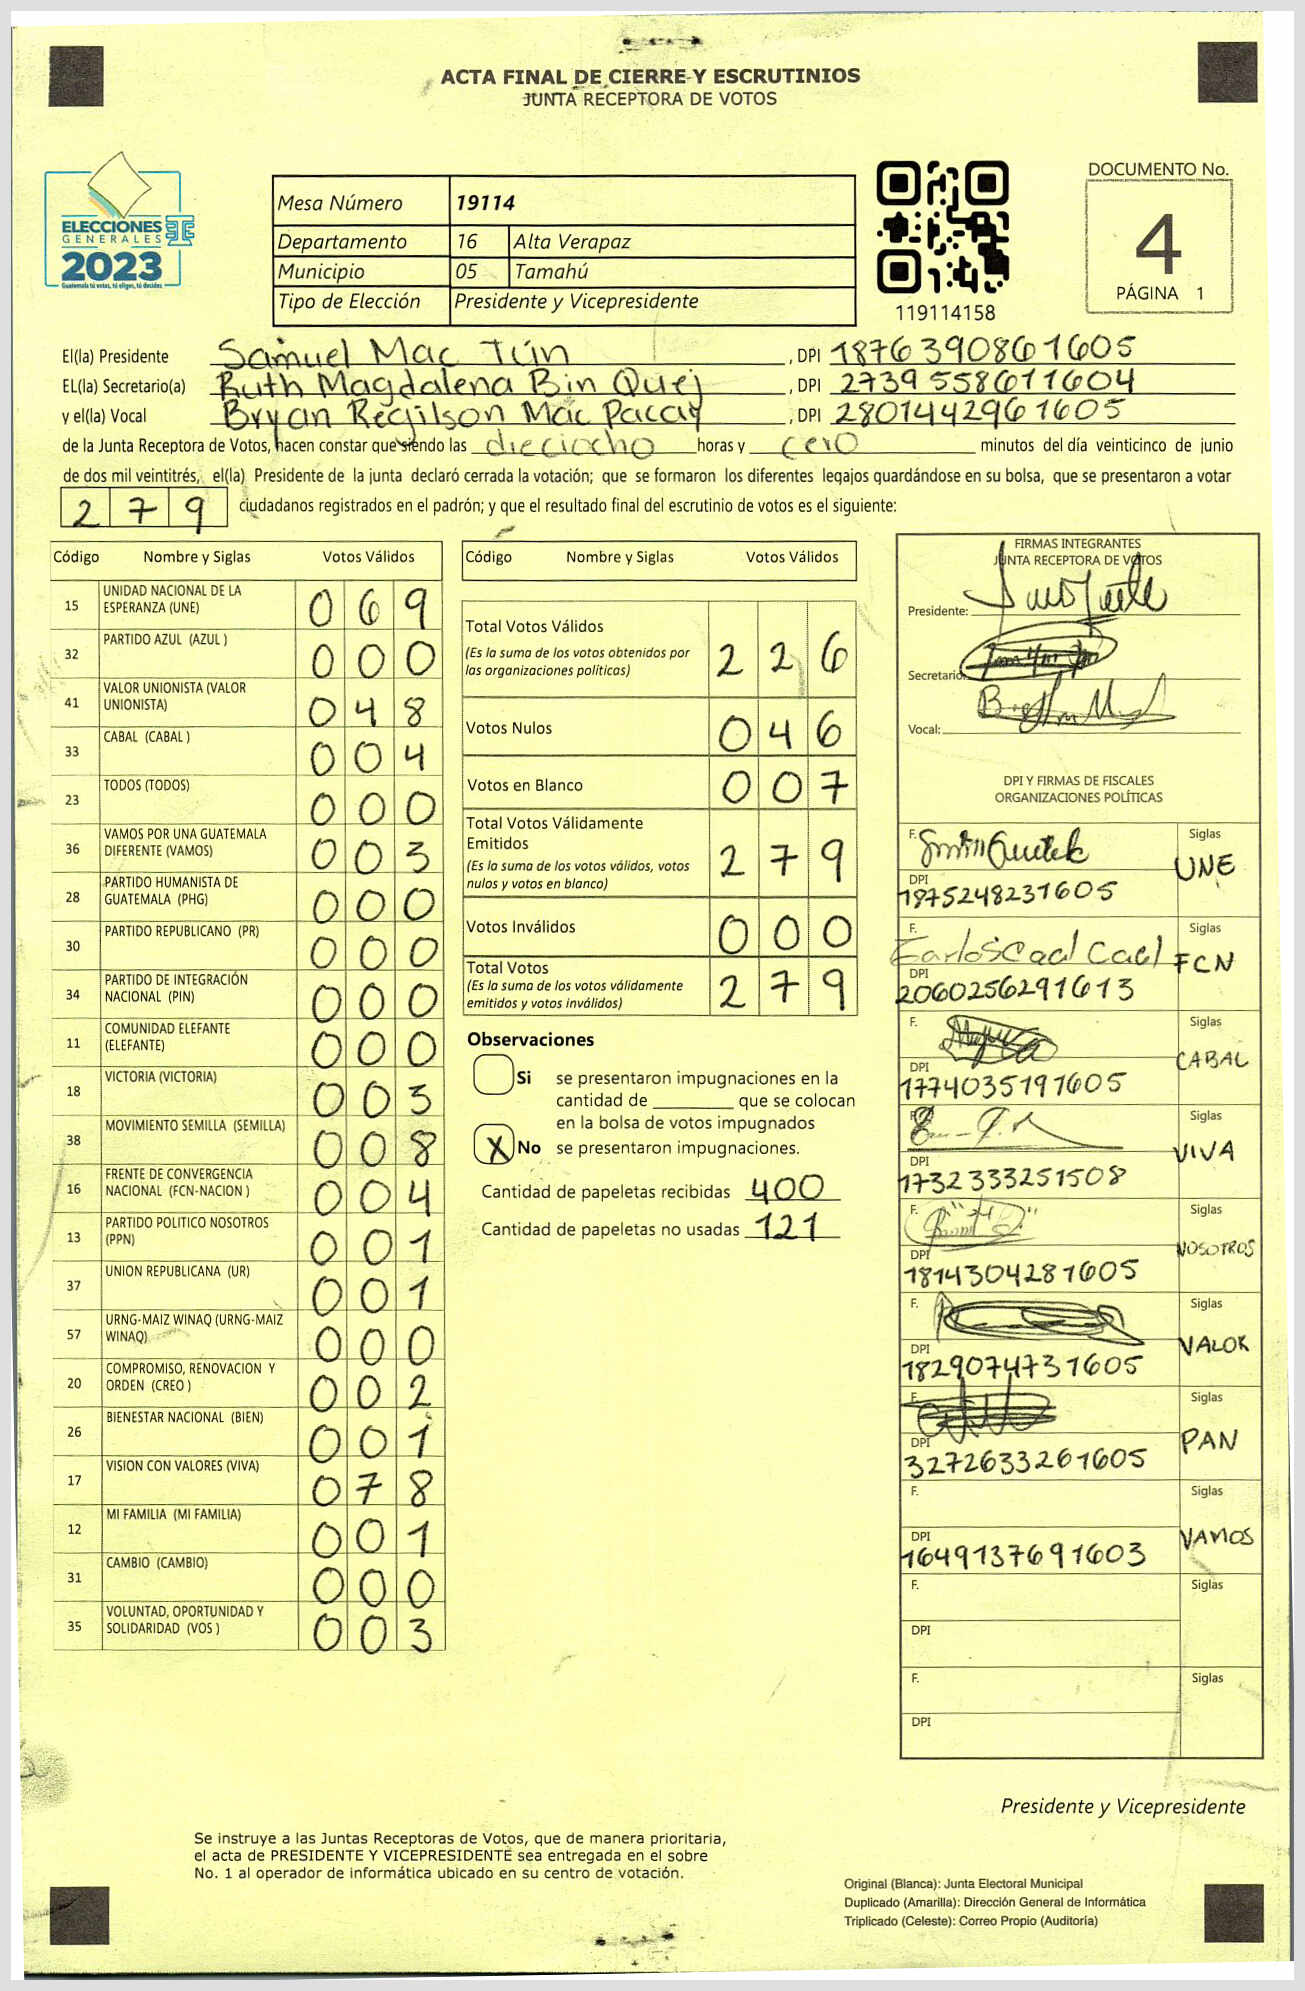 ACTA FINAL DE CIERRE Y ESCRUTINIOS
JUNTA RECEPTORA DE VOTOS
ELECCIONES
GENERALES
2023
Guatemala tú votas, tú eliges, tú decides
Mesa Número 19114
Departamento 16 Alta Verapaz
Municipio 05 Tamahú
Tipo de Elección Presidente y Vicepresidente
119114158
DOCUMENTO No.
4
PÁGINA 1
El(la) Presidente Samuel Mac Tún, DPI 1876390861605
EL(la) Secretario(a) Ruth Magdalena Bin Quej, DPI 2739558611604
y el(la) Vocal Bryan Regilson Mac Pacay, DPI 2801442961605
de la Junta Receptora de Votos, hacen constar que siendo las dieciocho horas y cero minutos del día veinticinco de junio
de dos mil veintitrés, el(la) Presidente de la junta declaró cerrada la votación; que se formaron los diferentes legajos guardándose en su bolsa, que se presentaron a votar
279 ciudadanos registrados en el padrón; y que el resultado final del escrutinio de votos es el siguiente:
Código Nombre y Siglas Votos Válidos
15 UNIDAD NACIONAL DE LA ESPERANZA (UNE) 069
32 PARTIDO AZUL (AZUL ) 000
41 VALOR UNIONISTA (VALOR UNIONISTA) 048
33 CABAL (CABAL ) 004
23 TODOS (TODOS) 000
36 VAMOS POR UNA GUATEMALA DIFERENTE (VAMOS) 003
28 PARTIDO HUMANISTA DE GUATEMALA (PHG) 000
30 PARTIDO REPUBLICANO (PR) 000
34 PARTIDO DE INTEGRACIÓN NACIONAL (PIN) 000
11 COMUNIDAD ELEFANTE (ELEFANTE) 000
18 VICTORIA (VICTORIA) 003
38 MOVIMIENTO SEMILLA (SEMILLA) 008
16 FRENTE DE CONVERGENCIA NACIONAL (FCN-NACION ) 004
13 PARTIDO POLITICO NOSOTROS (PPN) 001
37 UNION REPUBLICANA (UR) 001
57 URNG-MAIZ WINAQ (URNG-MAIZ WINAQ) 000
20 COMPROMISO, RENOVACION Y ORDEN (CREO ) 002
26 BIENESTAR NACIONAL (BIEN) 001
17 VISION CON VALORES (VIVA) 078
12 MI FAMILIA (MI FAMILIA) 001
31 CAMBIO (CAMBIO) 000
35 VOLUNTAD, OPORTUNIDAD Y SOLIDARIDAD (VOS ) 003
Código Nombre y Siglas Votos Válidos
Total Votos Válidos 226
(Es la suma de los votos obtenidos por
las organizaciones políticas)
Votos Nulos 046
Votos en Blanco 007
Total Votos Válidamente
Emitidos 279
(Es la suma de los votos válidos, votos
nulos y votos en blanco)
Votos Inválidos 000
Total Votos 279
(Es la suma de los votos válidamente
emitidos y votos inválidos)
Observaciones
Si se presentaron impugnaciones en la
cantidad de ________ que se colocan
en la bolsa de votos impugnados
X No se presentaron impugnaciones.
Cantidad de papeletas recibidas 400
Cantidad de papeletas no usadas 121
FIRMAS INTEGRANTES
JUNTA RECEPTORA DE VOTOS
Presidente:
Secretario:
Vocal:
DPI Y FIRMAS DE FISCALES
ORGANIZACIONES POLÍTICAS
F. Siglas UNE
DPI 1875248231605
F. Carlos Caal Caal Siglas FCN
DPI 2060256291613
F. Siglas CABAL
DPI 1774035191605
F. Siglas VIVA
DPI 1732333251508
F. Siglas NOSOTROS
DPI 1814304281605
F. Siglas VALOR
DPI 1829074731605
F. Siglas PAN
DPI 3272633261605
F. Siglas VAMOS
DPI 1649137691603
F. Siglas
DPI
F. Siglas
DPI
Presidente y Vicepresidente
Se instruye a las Juntas Receptoras de Votos, que de manera prioritaria,
el acta de PRESIDENTE Y VICEPRESIDENTE sea entregada en el sobre
No. 1 al operador de informática ubicado en su centro de votación.
Original (Blanca): Junta Electoral Municipal
Duplicado (Amarilla): Dirección General de Informática
Triplicado (Celeste): Correo Propio (Auditoría)